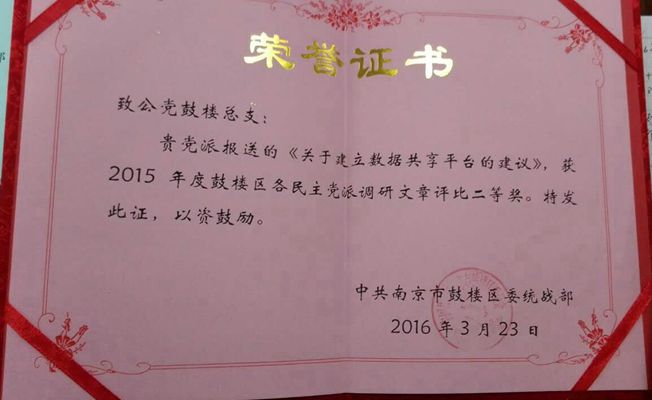 荣誉证书
致公党鼓楼总支：
贵党派报送的《关于建立数据共享平台的建议》，获
2015 年度鼓楼区各民主党派调研文章评比二等奖。特发
此证，以资鼓励。
中共南京市鼓楼区委统战部
2016 年 3 月 23 日